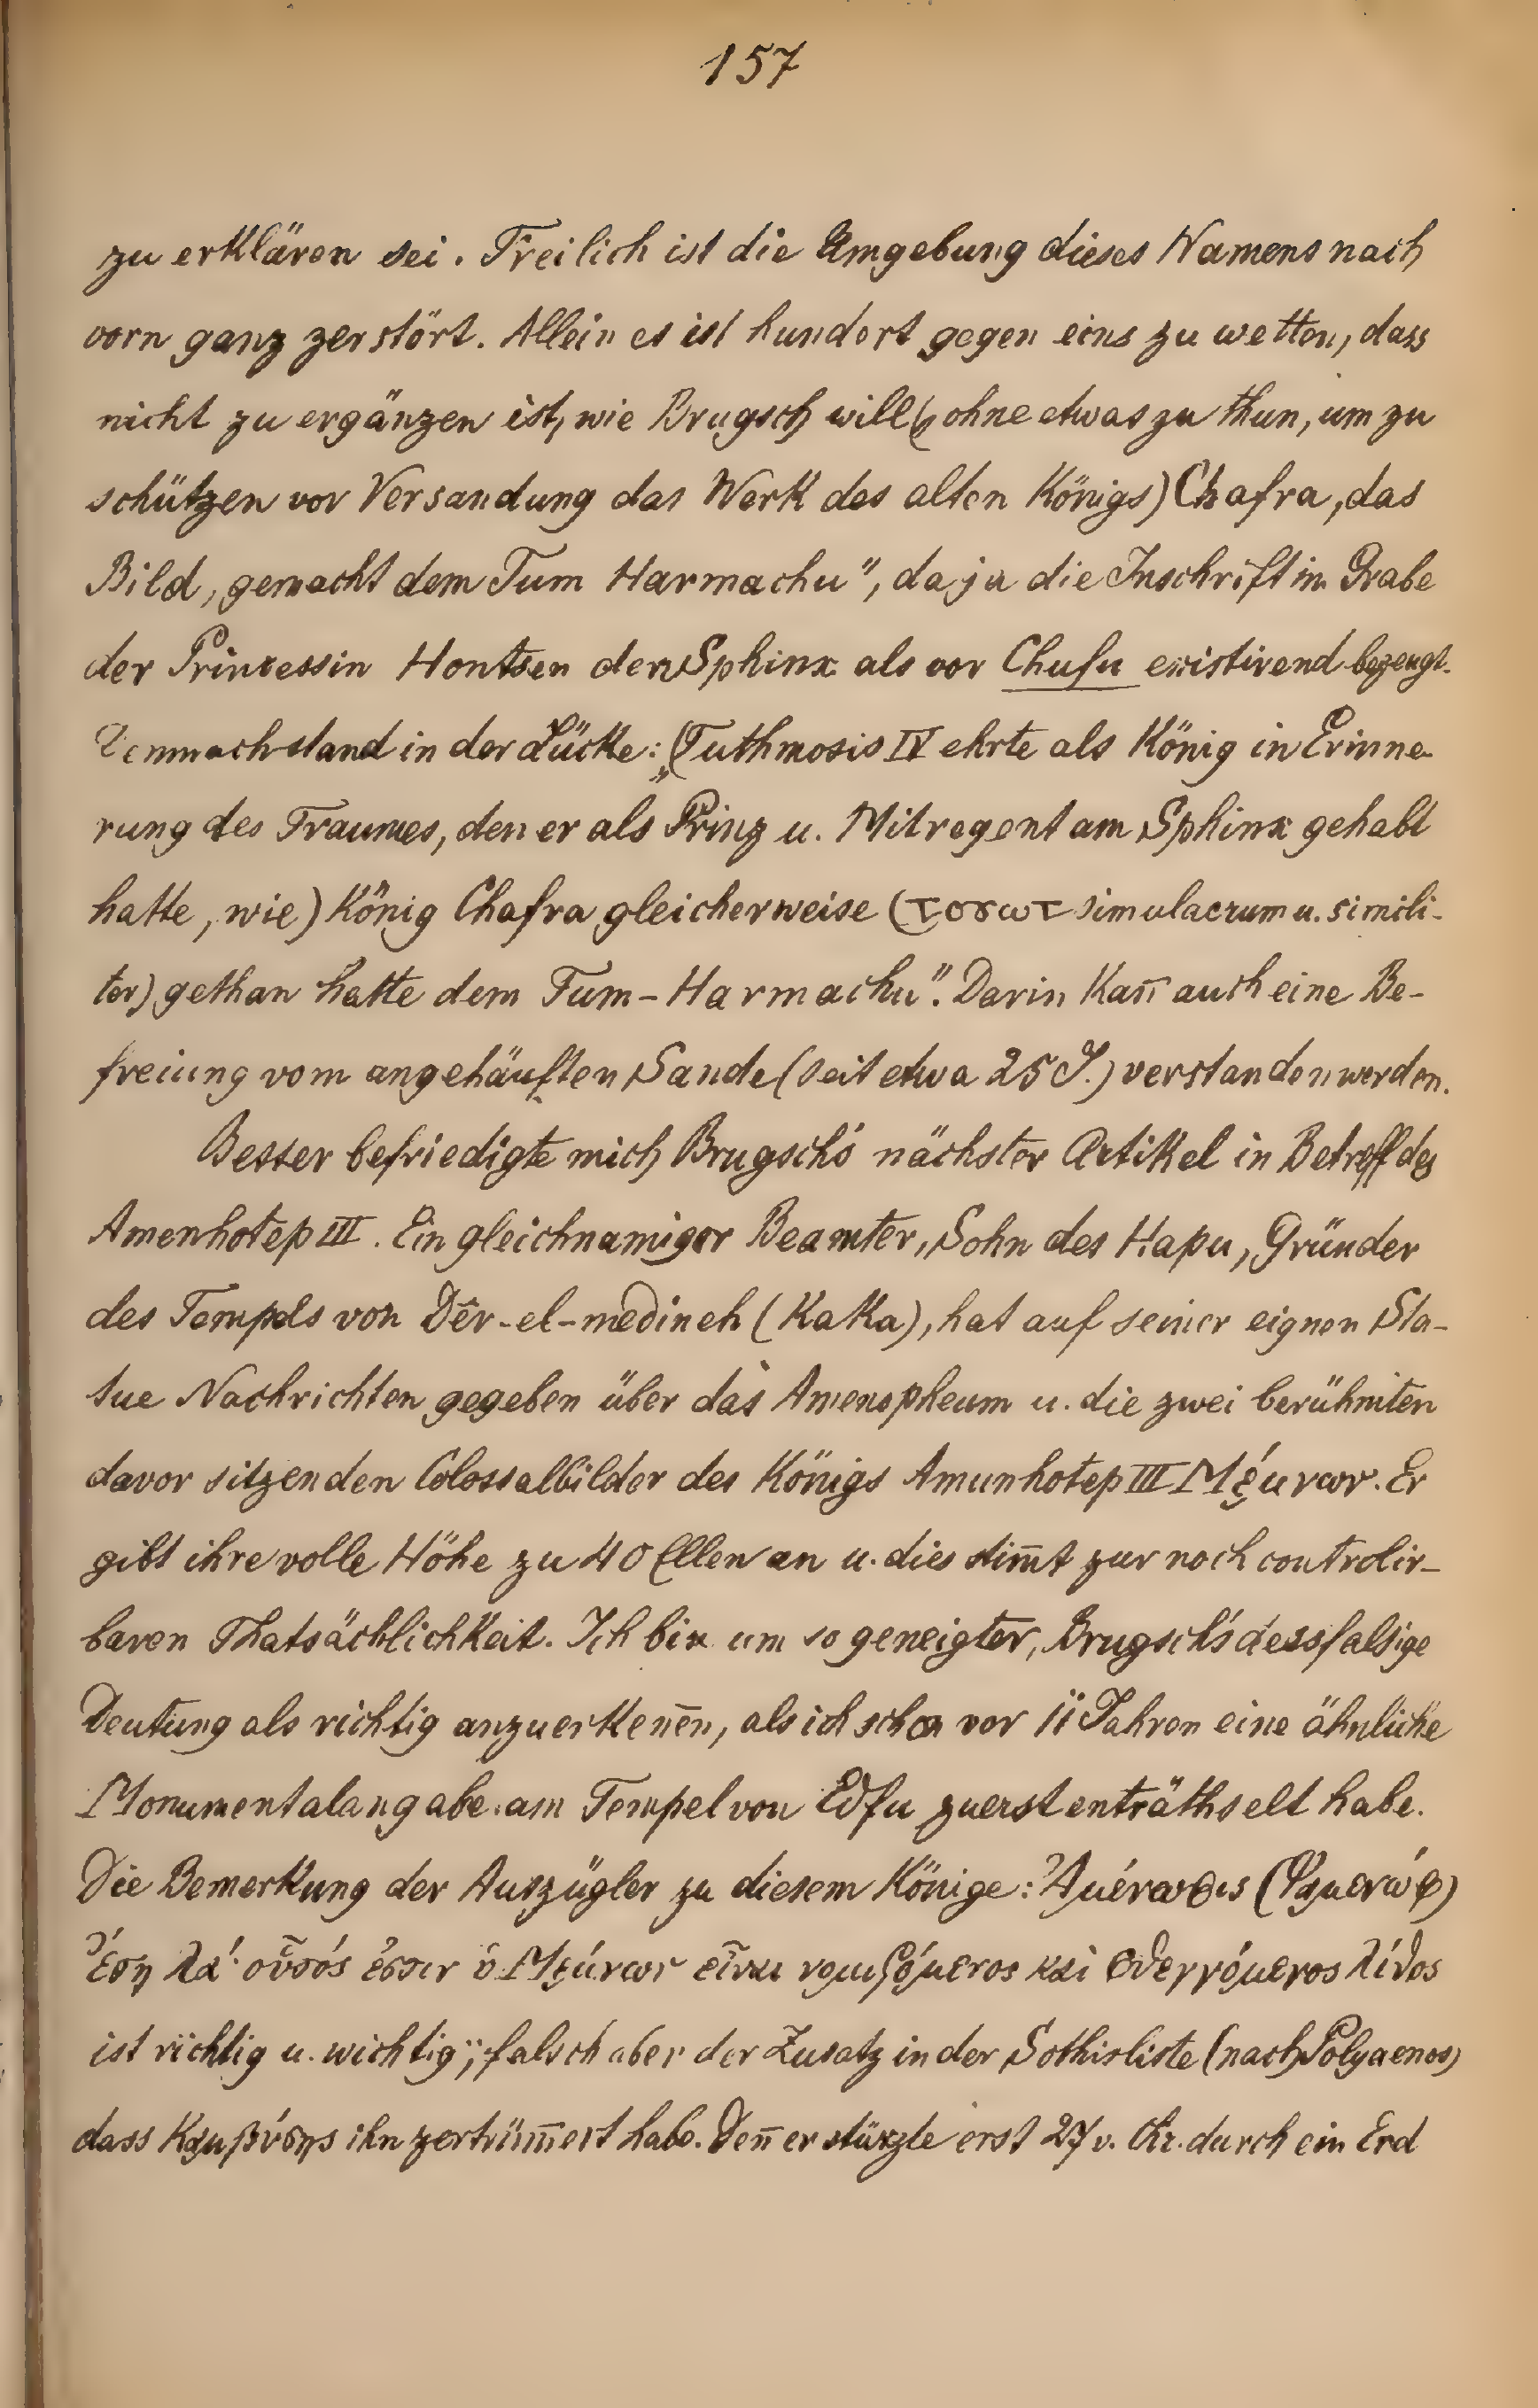 157
zu erklären sei. Freilich ist die Umgebung dieses Namens nach
vorn ganz zerstört. Allein es ist hundert gegen eins zu wetten, dass
nicht zu ergänzen ist, wie Brugsch will („ohne etwas zu thun, um zu
schützen vor Versandung das Werk des alten Königs) Chafra, das
Bild, gemacht dem Tum Harmachu", da ja die Inschrift im Grabe
der Prinzessin Hontsen den Sphinx als vor Chufu existirend bezeugt.
Demnach stand in der Lücke: „(Tuthmosis IV ehrte als König in Erinne-
rung des Traumes, den er als Prinz u. Mitregent am Sphinx gehabt
hatte, wie) König Chafra gleicherweise (ⲧⲟⲩⲱⲧ simulacrum u. simili-
ter) gethan hatte dem Tum-Harmachu". Darin kan̄ auch eine Be-
freiung vom angehäuften Sande (seit etwa 25 J.) verstanden werden.
Besser befriedigte mich Brugsch's nächster Artikel in Betreff des
Amenhotep III. Ein gleichnamiger Beamter, Sohn des Hapu, Gründer
des Tempels von Dêr-el-medineh (Kaka), hat auf seiner eignen Sta-
tue Nachrichten gegeben über das Amenopheum u. die zwei berühmten
davor sitzenden Colossalbilder des Königs Amunhotep III Μέμνων. Er
gibt ihre volle Höhe zu 40 Ellen an u. dies stim̄t zur noch controlir-
baren Thatsächlichkeit. Ich bin um so geneigter, Brugsch's dessfalsige
Deutung als richtig anzuerkenēn, als ich schon vor 11 Jahren eine ähnliche
Monumentalangabe am Tempel von Edfu zuerst enträthselt habe.
Die Bemerkung der Auszügler zu diesem Könige: Ἀμένωφις (Φαμενώφ)
ἔτη λα΄ οὗτός ἐστιν ὁ Μέμνων εἶναι νομιζόμενος καὶ φθεγγόμενος λίθος
ist richtig u. wichtig; falsch aber der Zusatz in der Sothisliste (nach Polyaenos)
dass Καμβύσης ihn zertrüm̄ert habe. Den̄ er stürzte erst 27 v. Chr. durch ein Erd